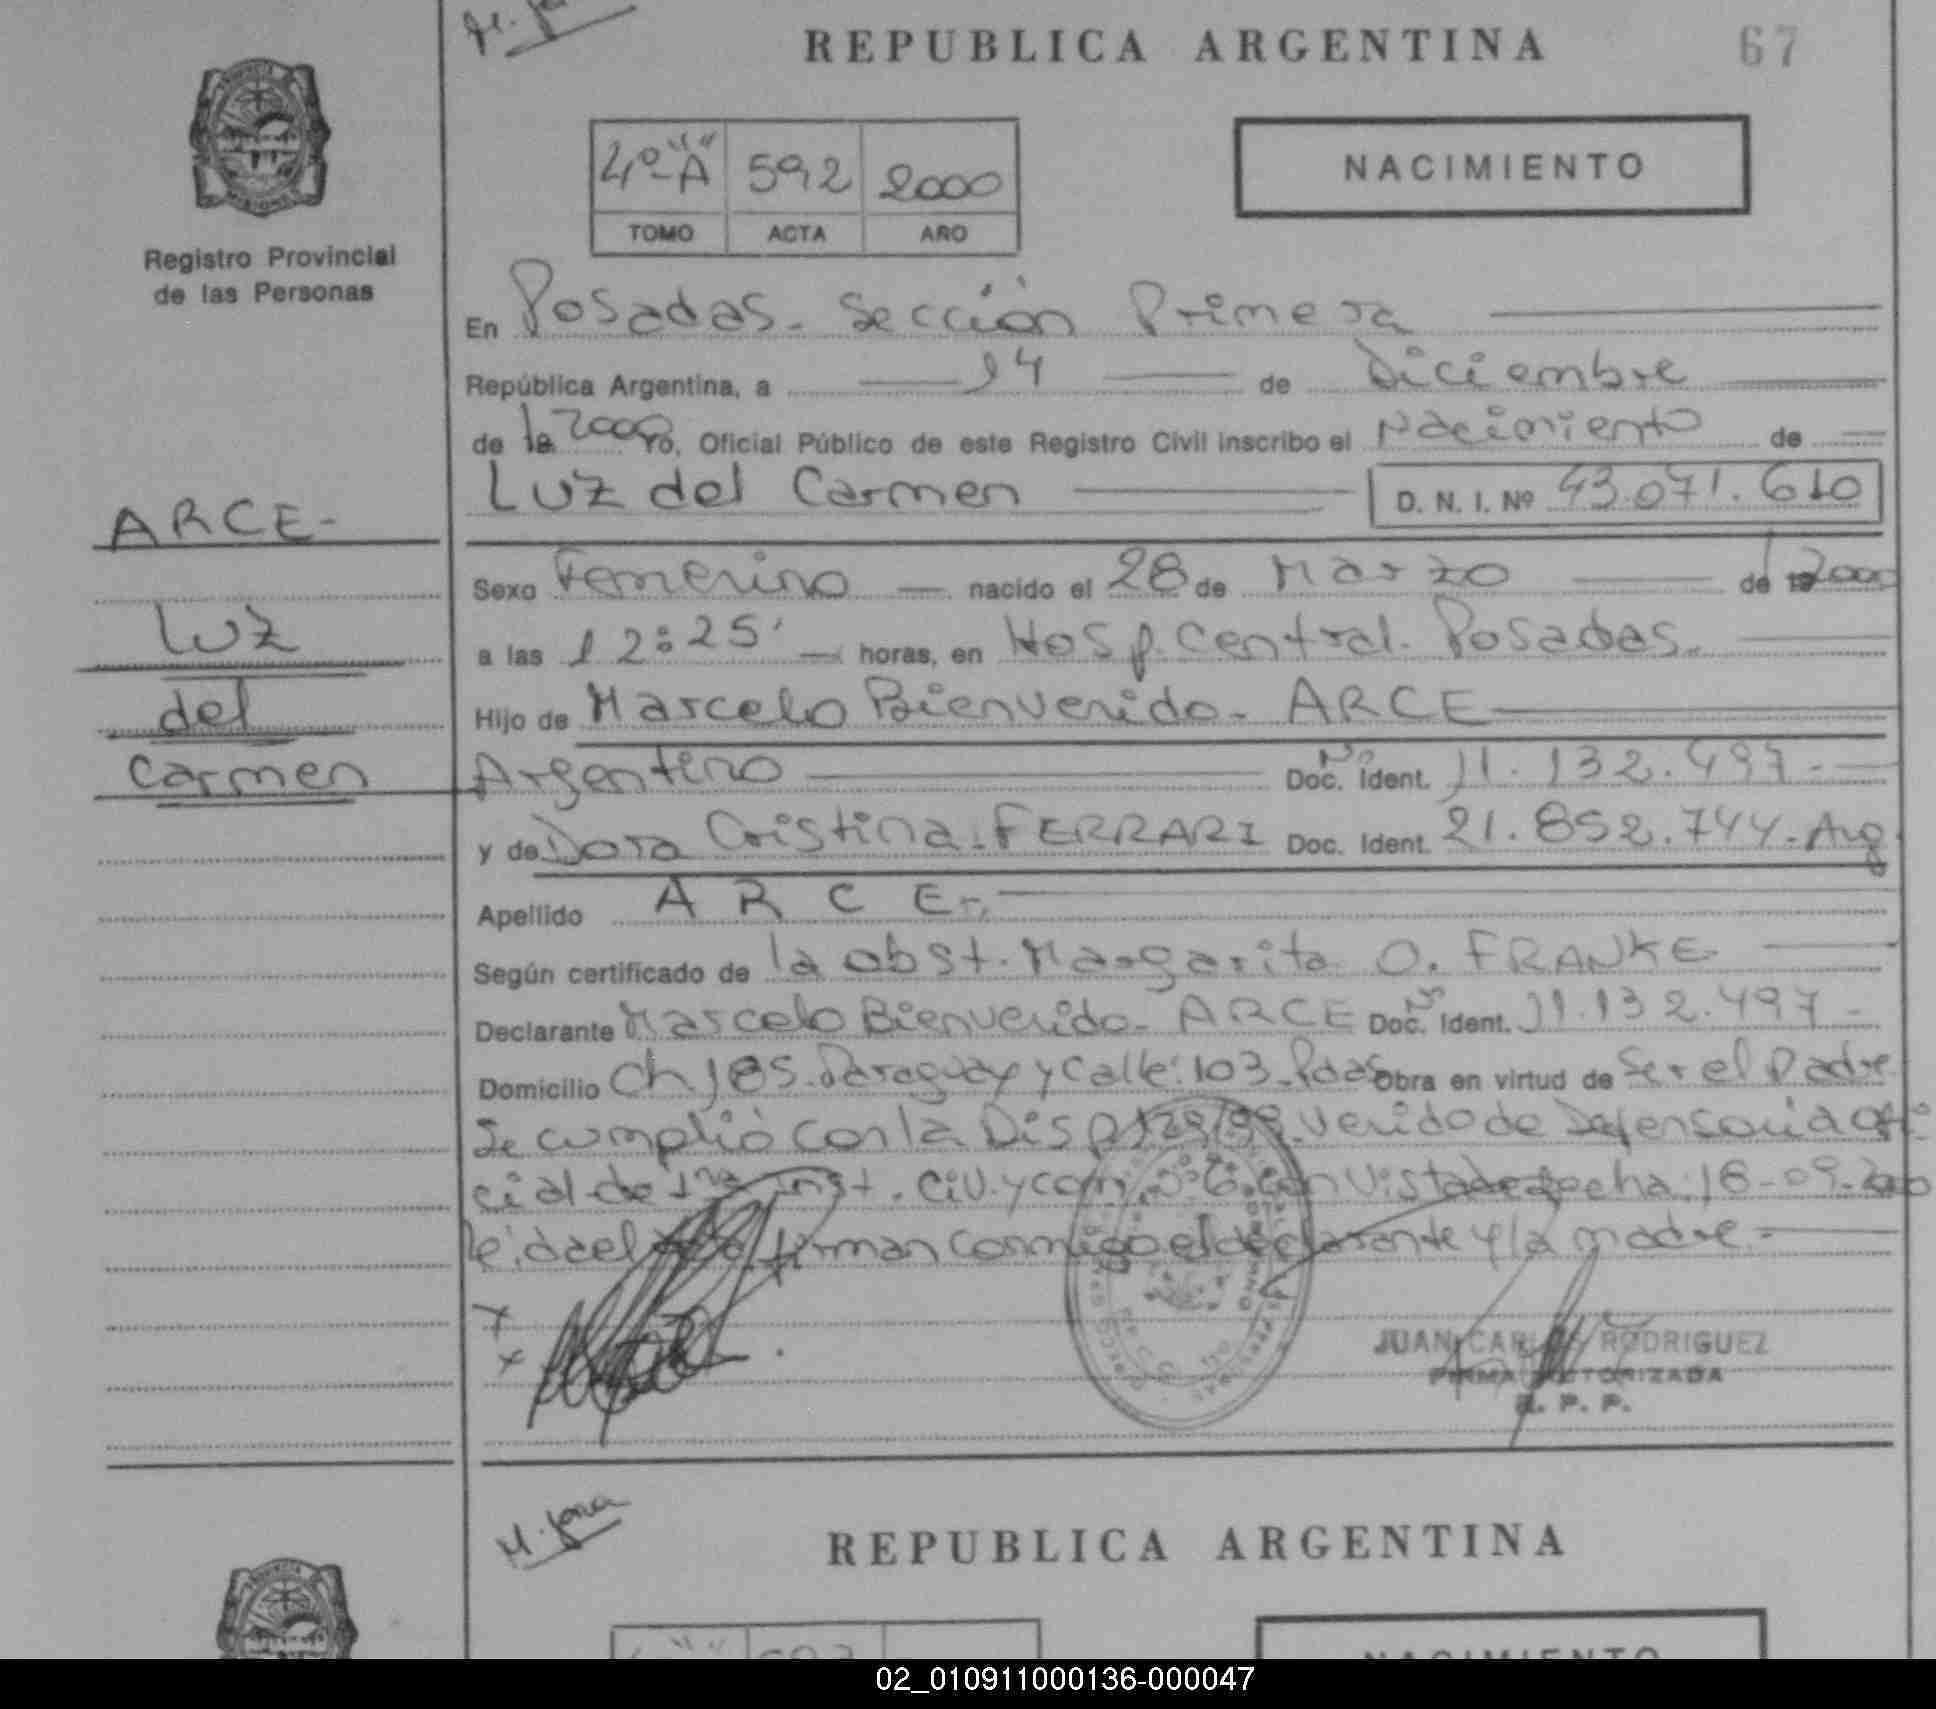 REPUBLICA ARGENTINA 67
4º "A" 592 2000
TOMO ACTA AÑO
NACIMIENTO
Registro Provincial
de las Personas
En Posadas. Sección Primera
República Argentina, a 14 de Diciembre
de 2000 Yo, Oficial Público de este Registro Civil inscribo el Nacimiento de
Luz del Carmen D. N. I. Nº 43.071.610
ARCE-
Luz
del
Carmen
Sexo Femenino nacido el 28 de Marzo de 2000
a las 12:25' horas, en Hosp. Central. Posadas.
Hijo de Marcelo Bienvenido. ARCE
Argentino Doc. Ident. Nº 11.132.497.-
y de Dora Cristina. FERRARI Doc. Ident. 21.852.744. Arg
Apellido ARCE-.
Según certificado de la obst. Margarita O. FRANKE
Declarante Marcelo Bienvenido. ARCE Doc. Ident. Nº 11.132.497-
Domicilio Ch 185. Paraguay y Calle: 103. Pdas Obra en virtud de Ser el Padre
Se cumplió con la Disp 129/99. venido de Defensoria Ofi-
cial de 1ra Inst. Civ. y Com. Nº 6. con vista de fecha: 18-09-2000
leída el acta firman conmigo el declarante y la madre.-
JUAN CARLOS RODRIGUEZ
FIRMA AUTORIZADA
R. P. P.
REPUBLICA ARGENTINA
NACIMIENTO
02_010911000136-000047